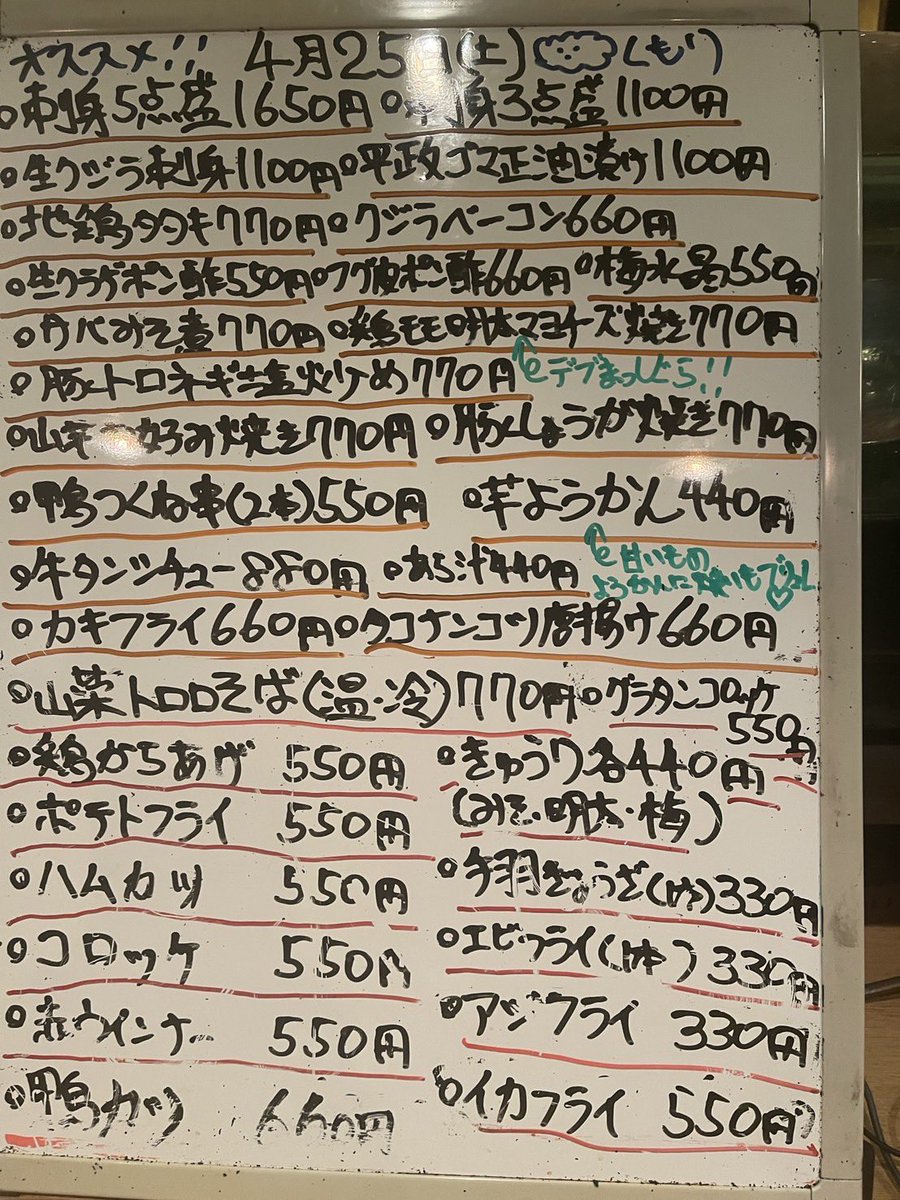 オススメ!! 4月25日(土) (もり)
○刺身5点盛1650円 ○刺身3点盛1100円
○生クジラ刺身1100円 ○平政ゴマ正油漬け1100円
○地鶏タタキ770円 ○クジラベーコン660円
○生クラゲポン酢550円 ○フグ皮ポン酢660円 ○梅水晶550円
○ウバみそ煮770円 ○鶏モモ明太マヨチーズ焼き770円
○豚トロネギ塩炒め770円 デブまっしぐら!!
○山菜 焼き770円 ○豚しょうが焼き770円
○鴨つくね串(2本)550円 ○芋ようかん440円
○牛タンシチュー880円 ○あら汁440円 甘いもの
ようかん
○カキフライ660円 ○タコナンコツ唐揚け660円
○山菜トロロそば(温・冷)770円 ○グラタンコロッケ
550円
○鶏からあげ 550円 ○きゅうり各440円
○ポテトフライ 550円 (みそ・明太・梅)
○ハムカツ 550円 ○手羽ぎょうざ(1ケ)330円
○コロッケ 550円 ○エビフライ(1本)330円
○赤ウインナー 550円 ○アジフライ 330円
○鴨カツ 660円 ○イカフライ 550円